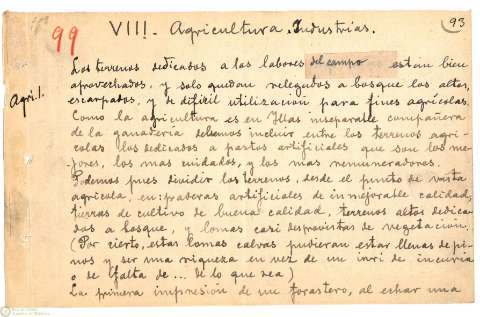 99
VIII.- Agricultura. Industrias.
93
Agri.1.
Los terrenos dedicados a las labores del campo estan bien
aprovechados, y solo quedan relegados a bosque los altos,
escarpados, y de dificil utilizacion para fines agricolas.
Como la agricultura es en Illas inseparable compañera
de la ganaderia debemos incluir entre los terrenos agri-
colas los dedicados a pastos artificiales que son los me-
jores, los mas cuidados, y los mas remuneradores.
Podemos pues dividir los terrenos, desde el punto de vista
agricola, en: praderas artificiales de inmejorable calidad,
tierras de cultivo de buena calidad, terrenos altos dedica-
dos a bosque, y lomas casi desprovistas de vegetacion.
(Por cierto, estas lomas calvas pudieran estar llenas de pi-
nos y ser una riqueza en vez de un inri de incuria
o de falta de... de lo que sea)
La primera impresion de un forastero, al echar una